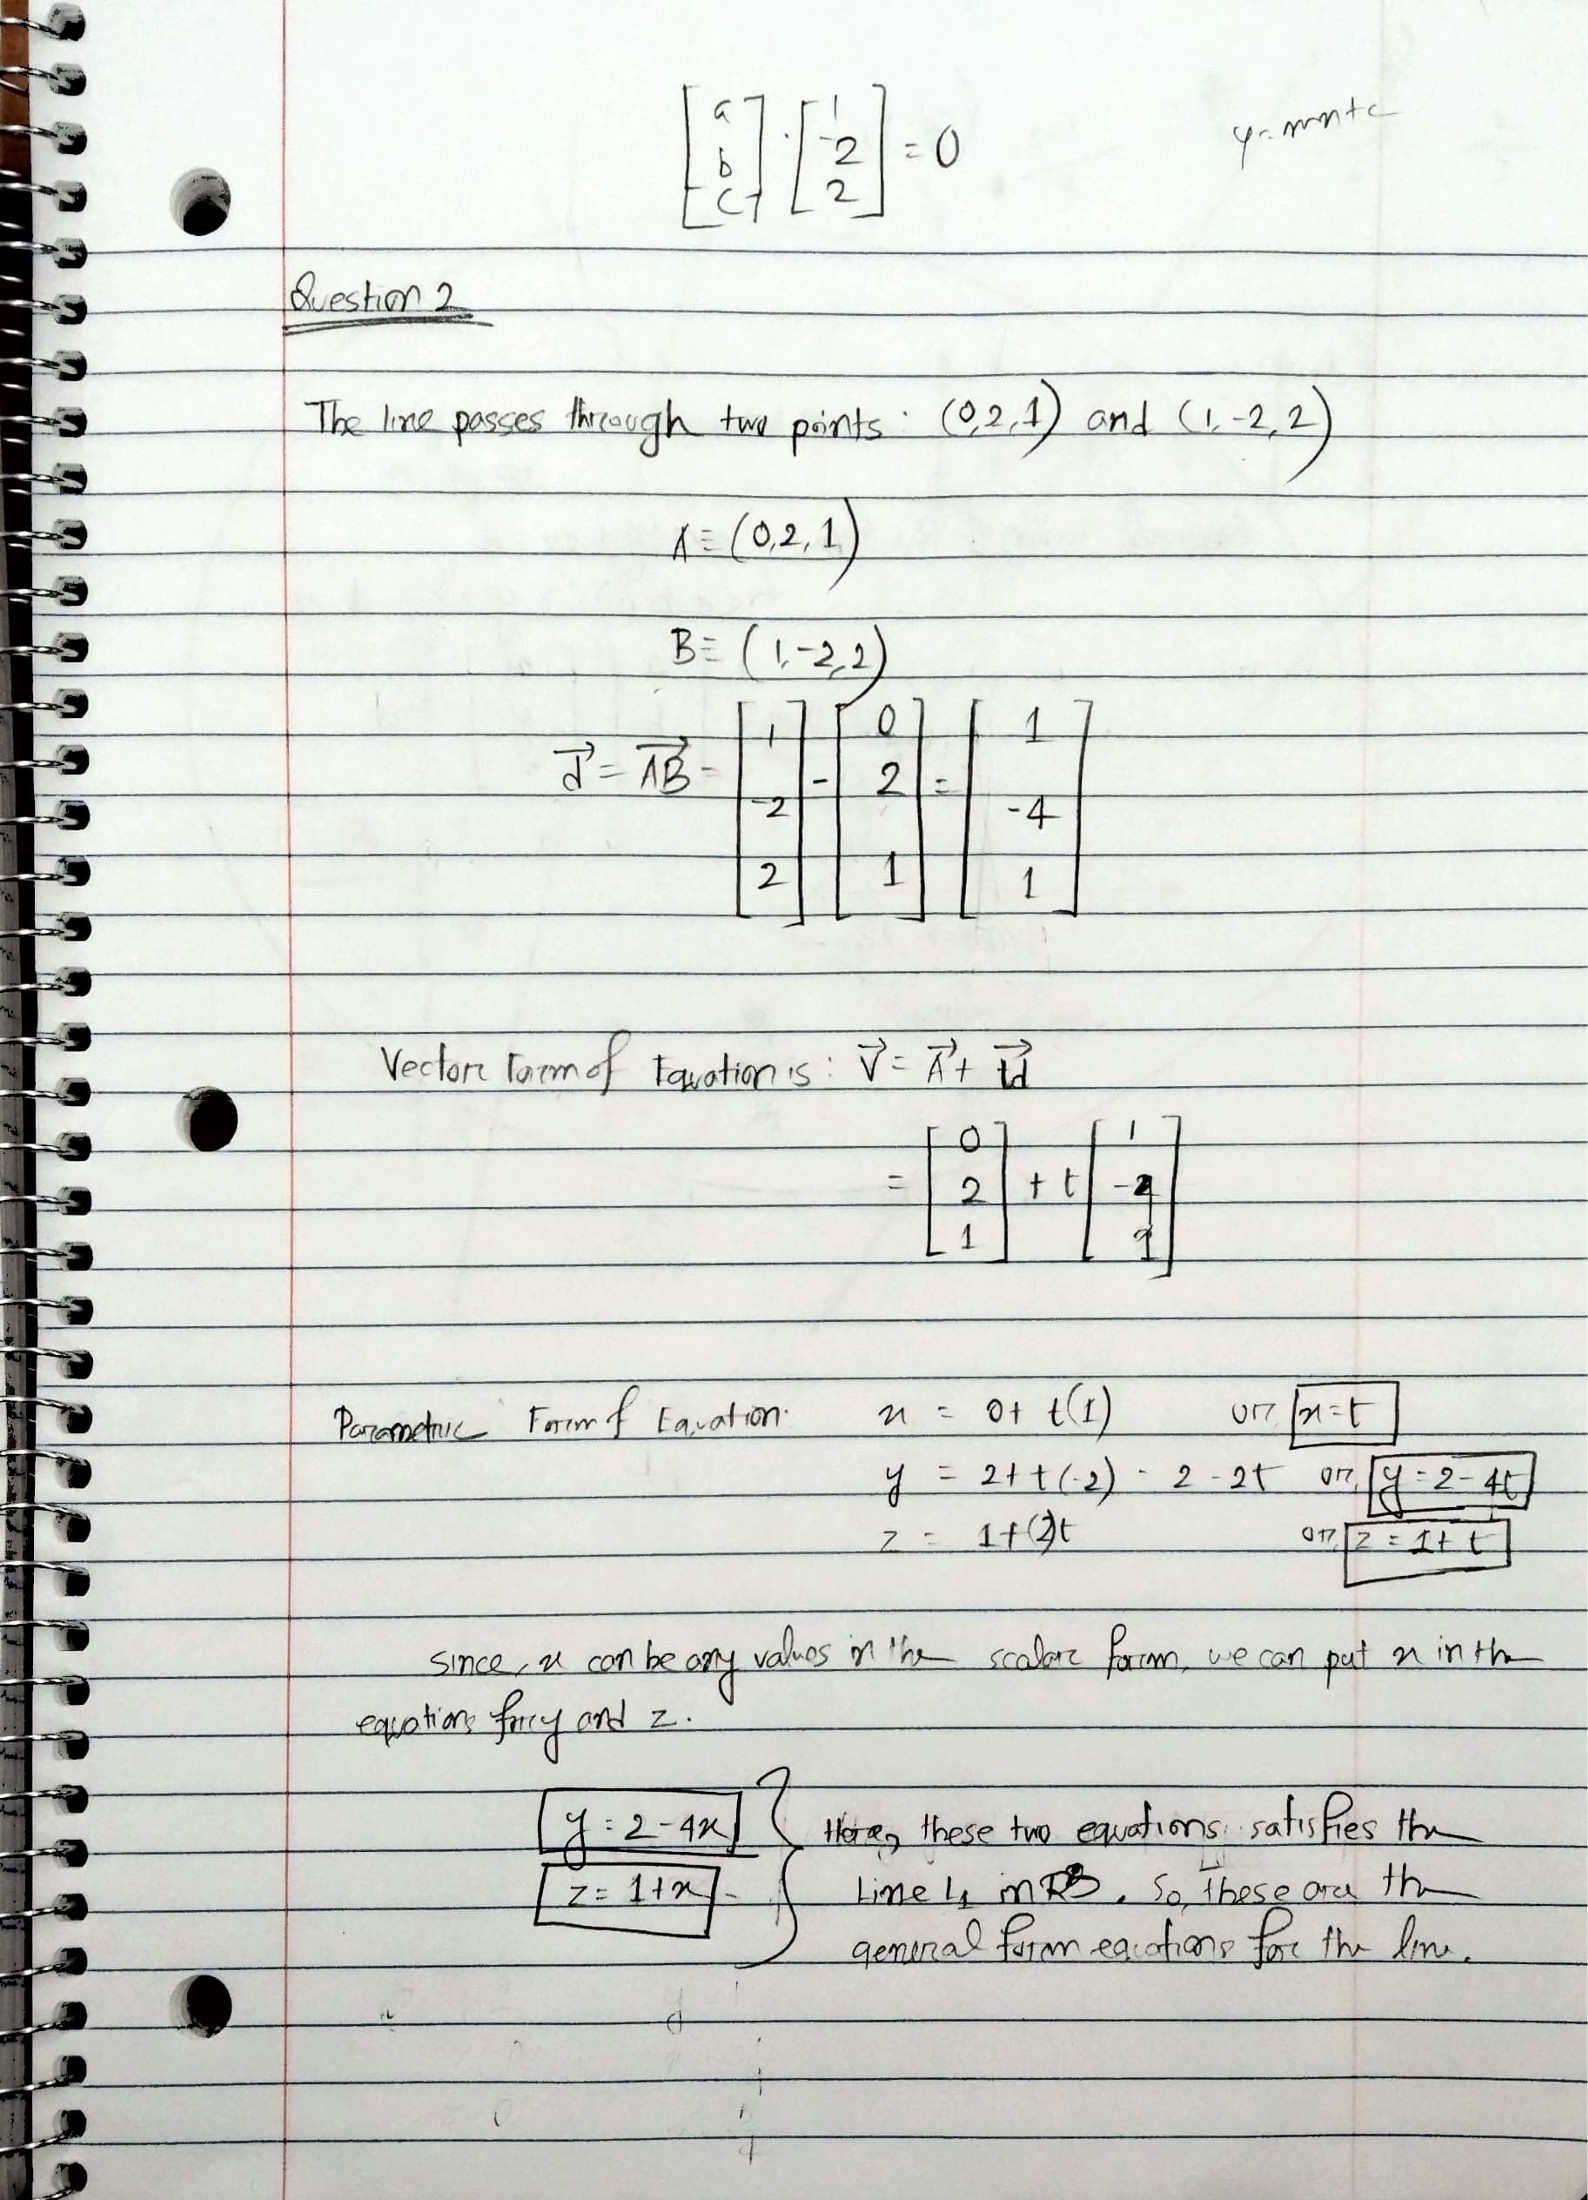 [a b c] · [1 -2 2] = 0
y = mx + c
Question 2
The line passes through two points: (0,2,1) and (1,-2,2)
A ≡ (0,2,1)
B ≡ (1,-2,2)
d⃗ = AB⃗ = [1 -2 2] - [0 2 1] = [1 -4 1]
Vector Form of Equation is: V⃗ = A⃗ + td⃗
= [0 2 1] + t [1 -4 1]
Parametric Form of Equation: x = 0 + t(1) or x = t
y = 2 + t(-2) = 2 - 2t or, y = 2 - 4t
z = 1 + (2)t or, z = 1 + t
since, x can be any values in the scalar form, we can put x in the
equations for y and z.
y = 2 - 4x } Here, these two equations satisfies the
z = 1 + x Line L1 in R3. So, these are the
general form equations for the line.